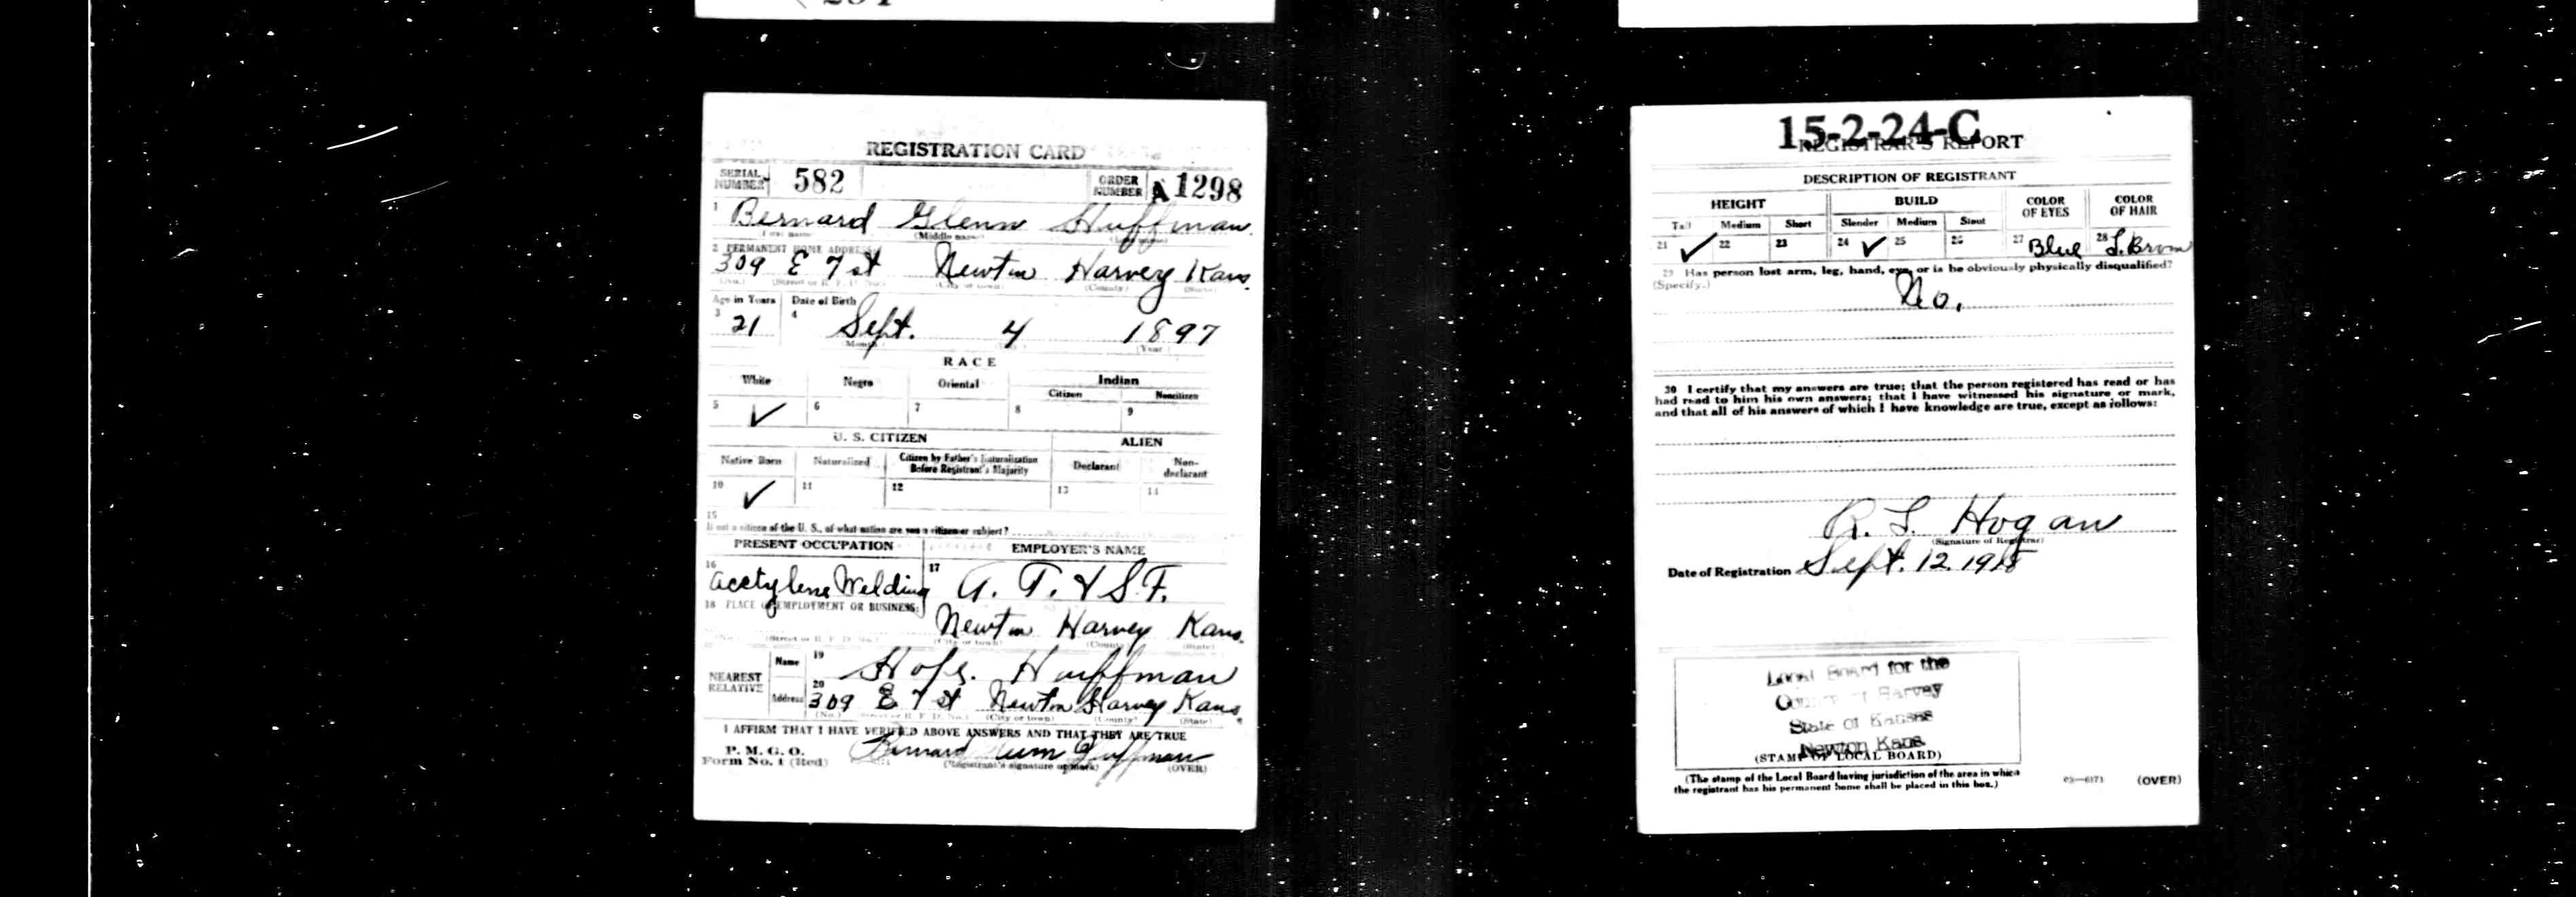 REGISTRATION CARD
SERIAL NUMBER 582 ORDER NUMBER A1298
1 Bernard Glenn Huffman
(First name) (Middle name) (Last name)
2 PERMANENT HOME ADDRESS:
309 E 7 st Newton Harvey Kans.
(No.) (Street or R. F. D. No.) (City or town) (County) (State)
Age in Years Date of Birth
3 21 4 Sept. 4 1897
(Month) (Year)
RACE
White Negro Oriental Indian
Citizen Noncitizen
5 ✓ 6 7 8 9
U. S. CITIZEN ALIEN
Native Born Naturalized Citizen by Father's Naturalization Before Registrant's Majority Declarant Non-declarant
10 ✓ 11 12 13 14
15
If not a citizen of the U. S., of what nation are you a citizen or subject?
PRESENT OCCUPATION EMPLOYER'S NAME
16 acetylene Welding 17 A. T. & S. F.
18 PLACE OF EMPLOYMENT OR BUSINESS:
Newton Harvey Kans.
(No.) (Street or R. F. D. No.) (City or town) (County) (State)
NEAREST RELATIVE Name 19 Huffman
Address 20 309 E 7 st Newton Harvey Kans.
(No.) (Street or R. F. D. No.) (City or town) (County) (State)
I AFFIRM THAT I HAVE VERIFIED ABOVE ANSWERS AND THAT THEY ARE TRUE
P. M. G. O.
Form No. 1 (Red) Bernard Glenn Huffman
(Registrant's signature or mark) (OVER)
15-2-24-C
REGISTRAR'S REPORT
DESCRIPTION OF REGISTRANT
HEIGHT BUILD COLOR OF EYES COLOR OF HAIR
Tall Medium Short Slender Medium Stout
21 ✓ 22 23 24 ✓ 25 26 27 Blue 28 L. Brown
29 Has person lost arm, leg, hand, eye, or is he obviously physically disqualified?
(Specify.) No.
30 I certify that my answers are true; that the person registered has read or has
had read to him his own answers; that I have witnessed his signature or mark,
and that all of his answers of which I have knowledge are true, except as follows:
R. L. Hogan
(Signature of Registrar)
Date of Registration Sept. 12. 1918
Local Board for the
County of Harvey
State of Kansas
Newton Kans.
(STAMP OF LOCAL BOARD)
(The stamp of the Local Board having jurisdiction of the area in which
the registrant has his permanent home shall be placed in this box.)
03—6171 (OVER)